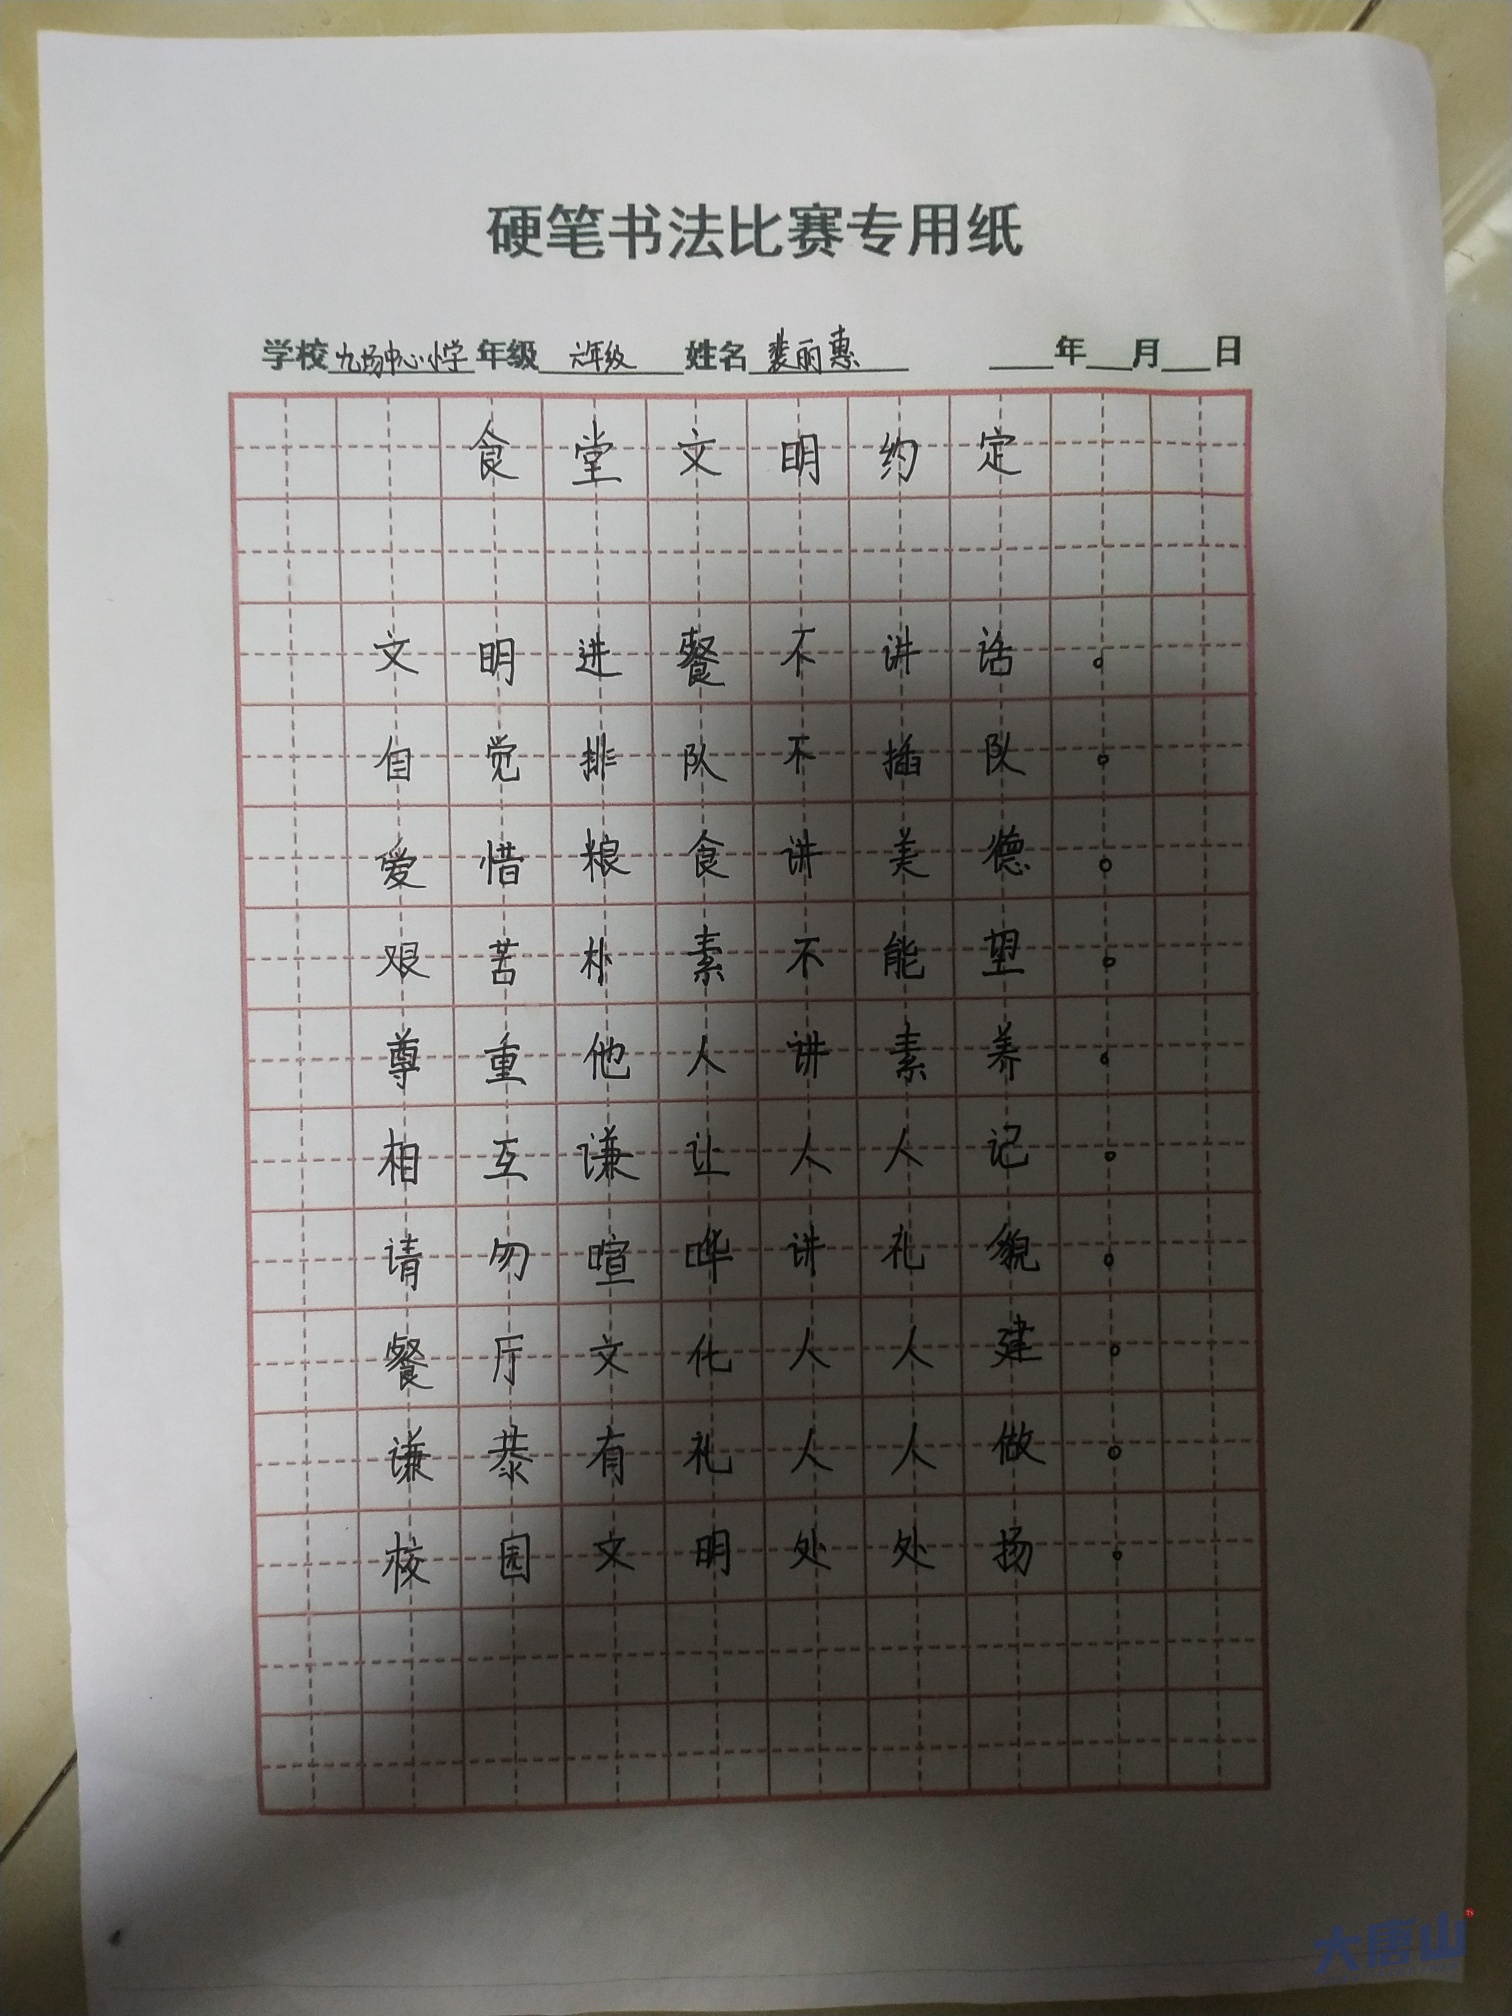 硬笔书法比赛专用纸
学校九场中心小学年级六年级姓名裴丽惠 年 月 日
食堂文明约定
文明进餐不讲话。
自觉排队不插队。
爱惜粮食讲美德。
艰苦朴素不能望。
尊重他人讲素养。
相互谦让人人记。
请勿喧哗讲礼貌。
餐厅文化人人建。
谦恭有礼人人做。
校园文明处处扬。
大唐山